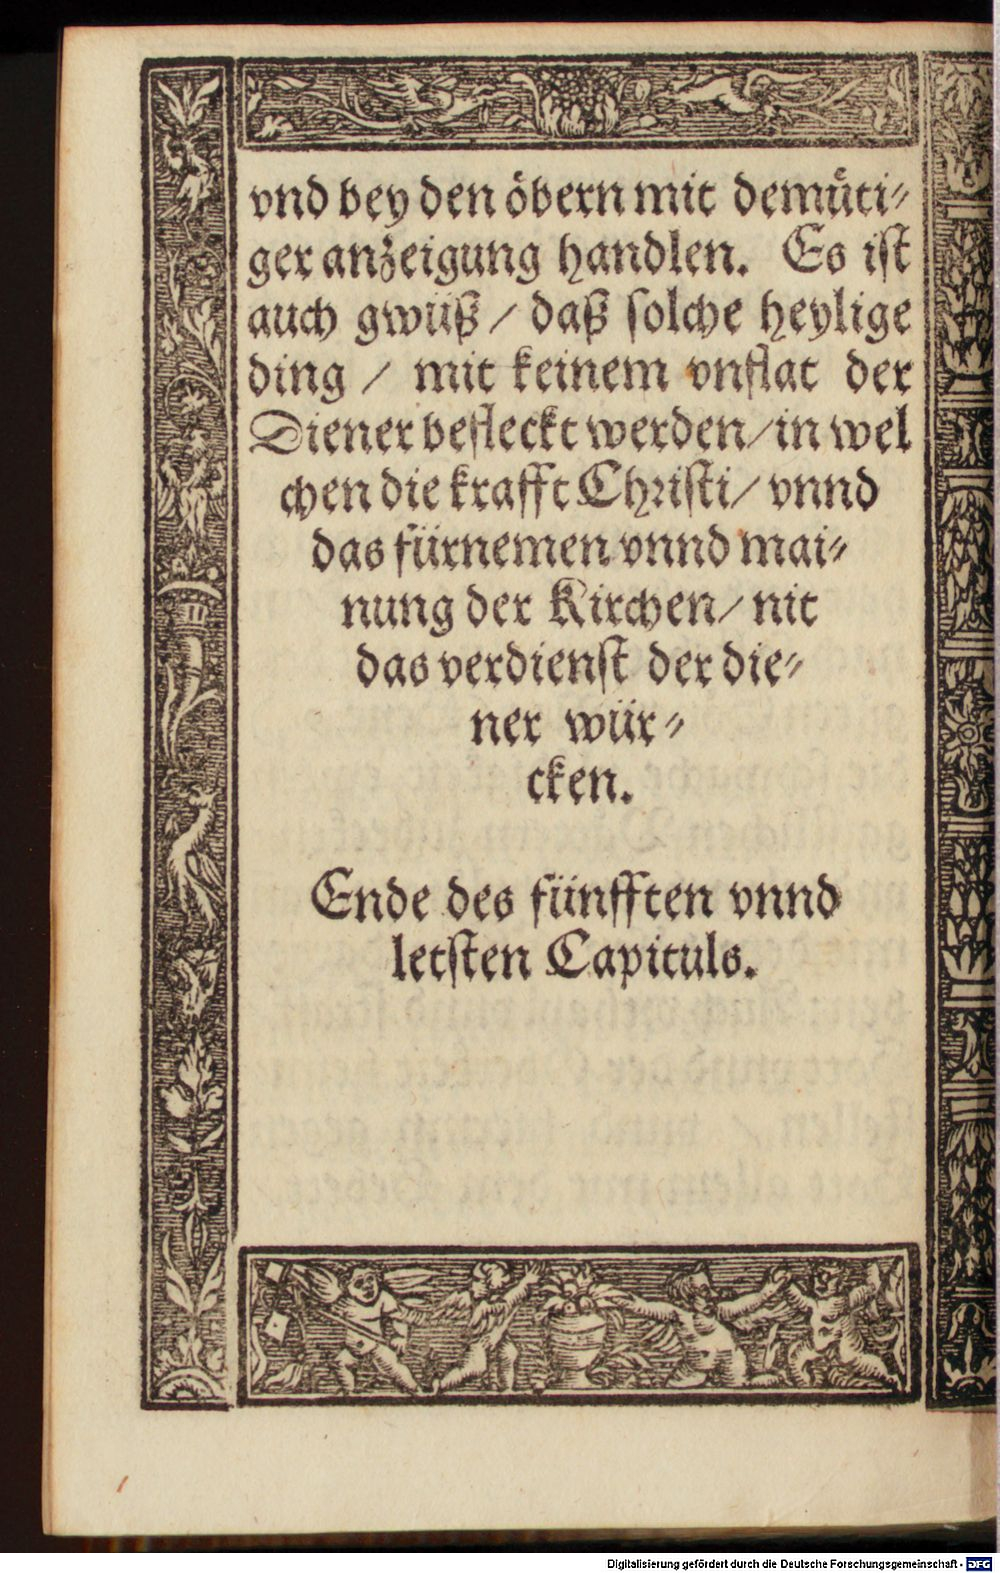 vnd bey den öbern mit demüti⸗
ger anzeigung handlen. Es ist
auch gwüß / daß solche heylige
ding / mit keinem vnflat der
Diener befleckt werden / in wel
chen die krafft Christi / vnnd
das fürnemen vnnd mai⸗
nung der Kirchen / nit
das verdienst der die⸗
ner wür⸗
cken.
Ende des fünfften vnnd
letsten Capituls.
Digitalisierung gefördert durch die Deutsche Forschungsgemeinschaft - DFG